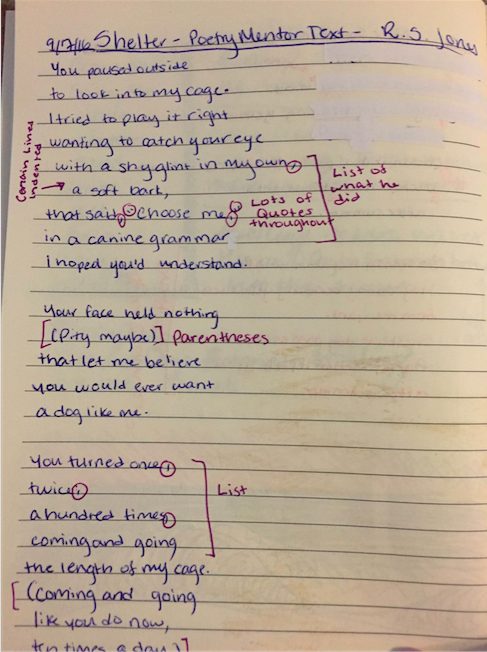 9/7/16 Shelter - Poetry Mentor Text - R.S. Jones
You paused outside
to look into my cage.
I tried to play it right
wanting to catch your eye
with a shy glint in my own,
a soft bark,
that said, "Choose me,"
in a canine grammar
i hoped you'd understand.
Certain Lines
Indented
List of
what he
did
Lots of
Quotes
throughout
Your face held nothing
[(Pity maybe)] Parentheses
that let me believe
you would ever want
a dog like me.
You turned once,
twice,
a hundred times,
coming and going
the length of my cage.
List
[(Coming and going
like you do now,
ten times a day.)]